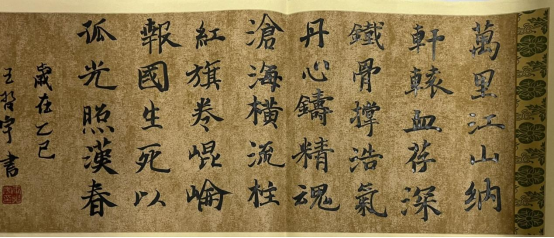 萬里江山納
軒轅血荐深
鐵骨撑浩氣
丹心鑄精魂
滄海橫流柱
紅旗卷崐崘
報國生死以
孤光照漢春
歲在乙巳
王哲宇書